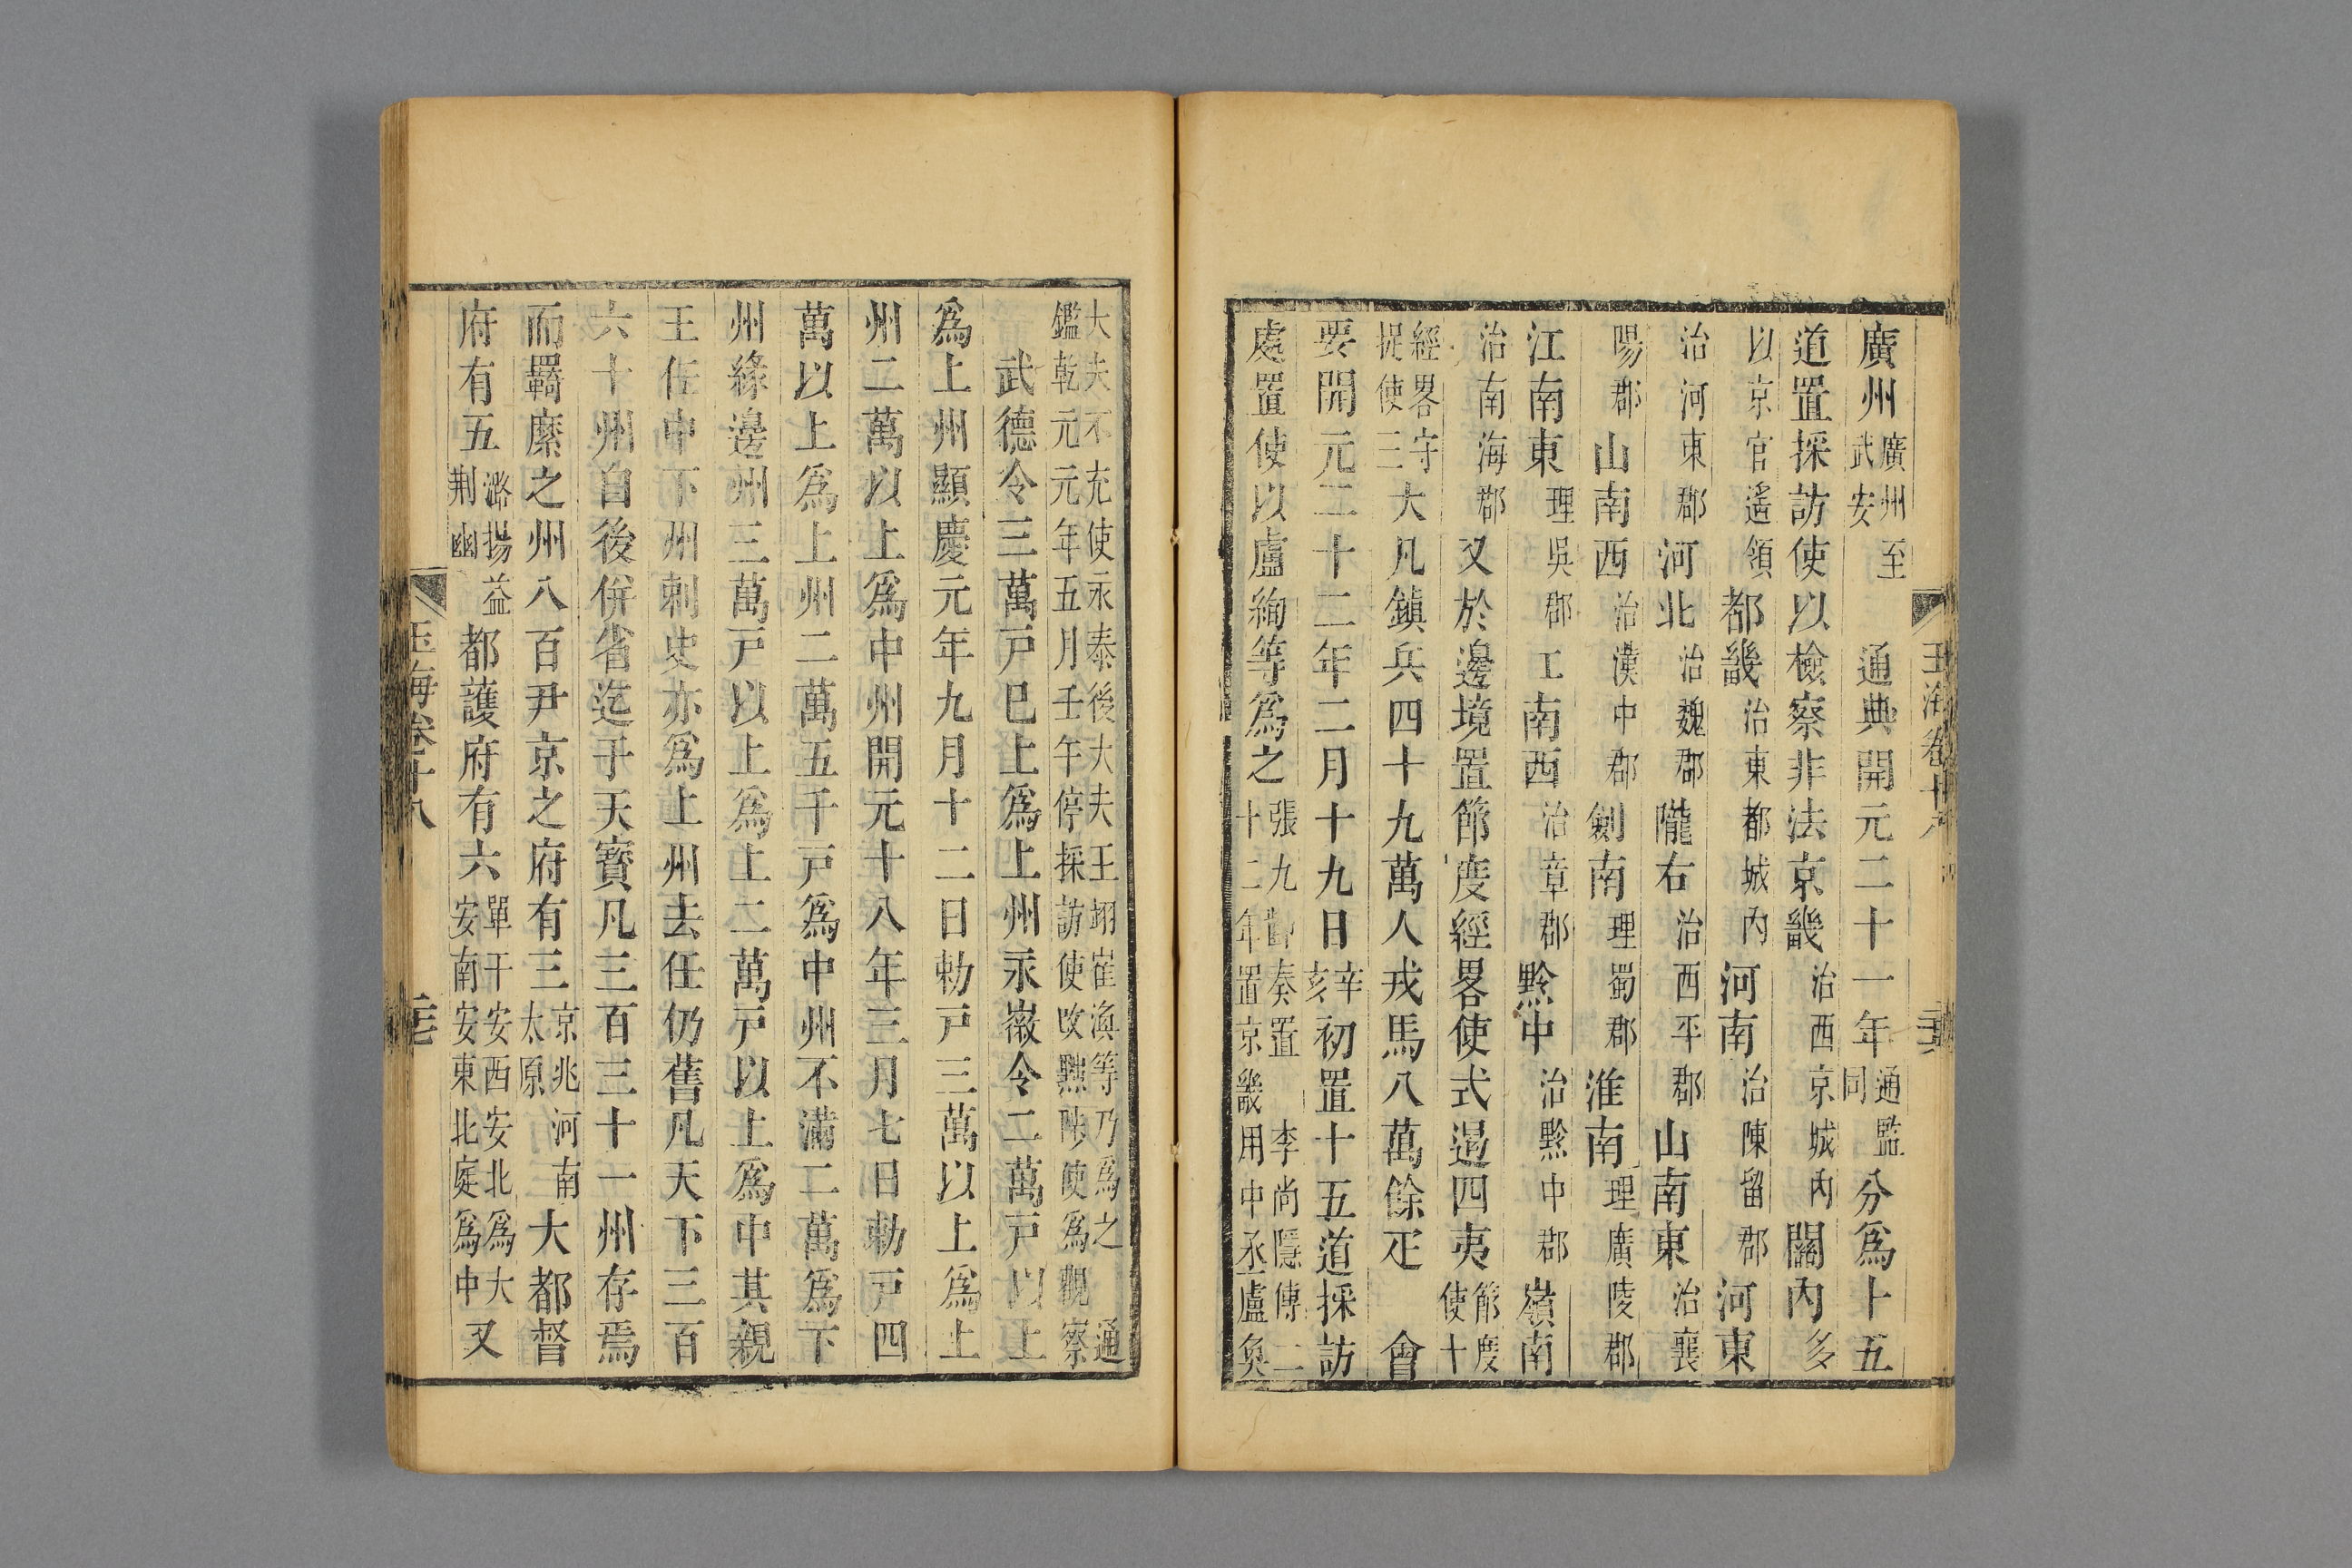 玉海卷十八
廣州廣州至武安　通典開元二十一年通監同分爲十五
道置採訪使以檢察非法京畿治西京城內關內多
以京官遙領都畿治東都城內河南治陳留郡河東
治河東郡河北治魏郡隴右治西平郡山南東治襄
陽郡山南西治漢中郡劍南理蜀郡淮南理廣陵郡
江南東理吳郡工南西治章郡黔中治黔中郡嶺南
治南海郡又於邊境置節度經畧使式遏四夷節度使十
經畧守捉使三大凡鎮兵四十九萬人戎馬八萬餘疋　會
要開元二十二年二月十九日辛亥初置十五道採訪
處置使以盧絢等爲之張九齡奏置　李尚隱傳二十二年置京畿用中丞盧奐
大夫不充使永泰後大夫王翊崔渙等乃爲之　通鑑乾元元年五月壬午停採訪使改黜陟使爲觀察
武德令三萬戸巳上爲上州永徽令二萬戸以上
爲上州顯慶元年九月十二日勅戸三萬以上爲上
州二萬以上爲中州開元十八年三月七日勅戸四
萬以上爲上州二萬五千戸爲中州不滿二萬爲下
州緣邊州三萬戸以上爲上二萬戸以上爲中其親
王佐中下州刺史亦爲上州去任仍舊凡天下三百
六十州自後併省迄于天寶凡三百三十一州存焉
而羈縻之州八百尹京之府有三京兆河南太原大都督
府有五潞揚益荆幽都護府有六單于安西安北爲大安南安東北庭爲中又
玉海卷十八